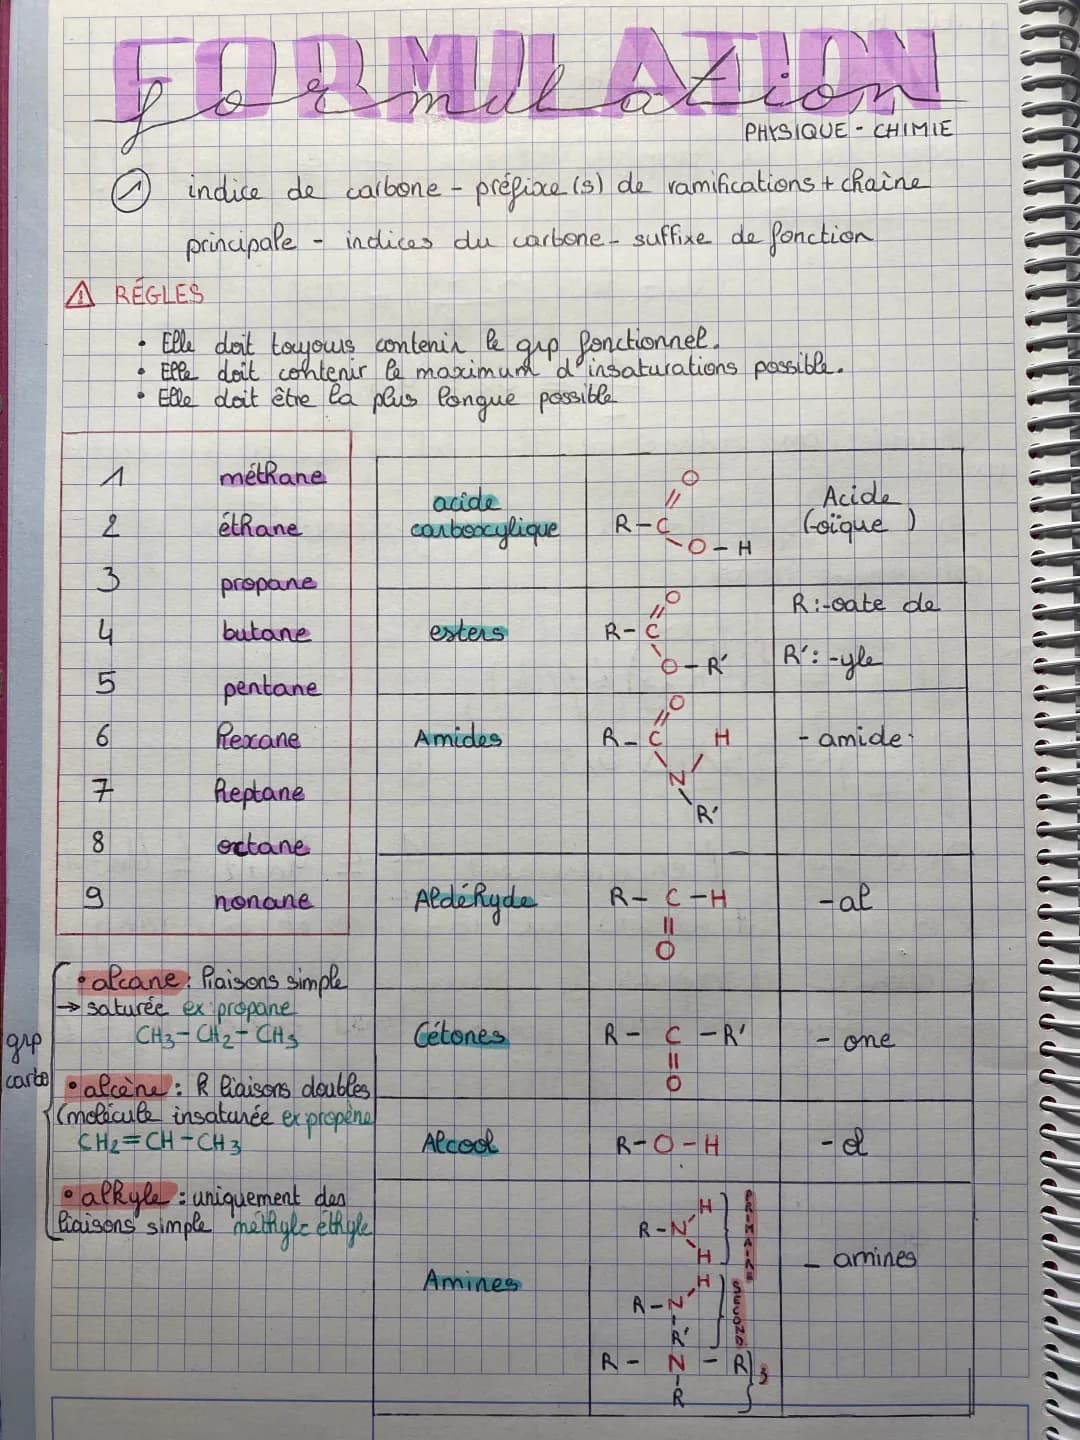 FORMULATION
formulation
PHYSIQUE - CHIMIE
① indice de carbone - préfixe(s) de ramifications + chaîne
principale - indices du carbone - suffixe de fonction
⚠ RÉGLES
• Elle doit toujours contenir le grp fonctionnel.
• Elle doit contenir le maximum d'insaturations possible.
• Elle doit être la plus longue possible
1 méthane
2 éthane
3 propane
4 butane
5 pentane
6 hexane
7 heptane
8 octane
9 nonane
grp
carbo
• alcane : liaisons simple
→ saturée ex : propane
CH3 - CH2 - CH3
• alcène : R liaisons doubles
(molécule insaturée ex propène
CH2 = CH - CH3
• alkyle : uniquement des
liaisons simple méthyle éthyle
acide
carboxylique
O
//
R - C
O - H
Acide
(-oïque )
esters
O
//
R - C
O - R'
R : -oate de
R' : -yle
Amides
O
//
R - C H
N
R'
- amide
Aldéhyde
R - C - H
||
O
- al
Cétones
R - C - R'
||
O
- one
Alcool
R - O - H
- ol
Amines
H
R - N
H
PRIMAIRE
H
R - N
R'
SECOND
R - N - R
R
3
- amines